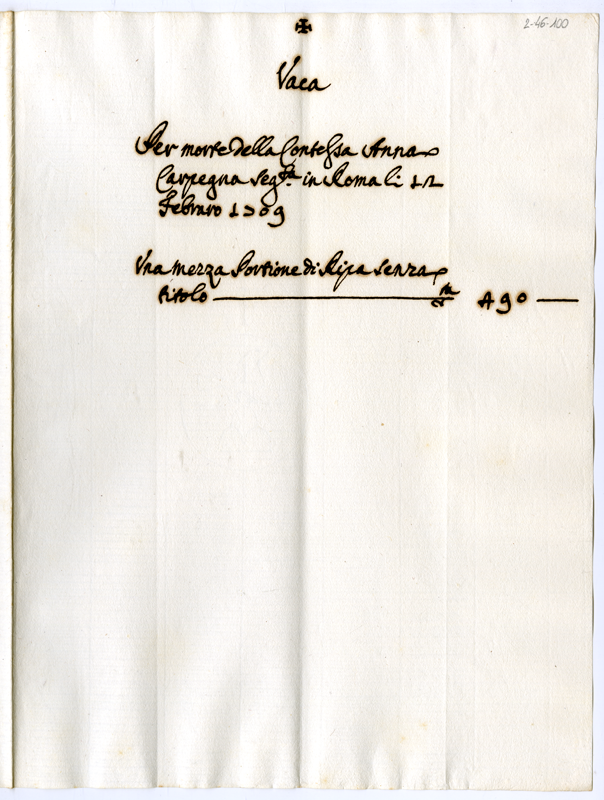 2-46-100
✠
Vaca
Per morte della Contessa Anna
Carpegna seg.ta in Roma li 12
Febraro 1709
Vna mezza Portione di Ripa senza
titolo 190